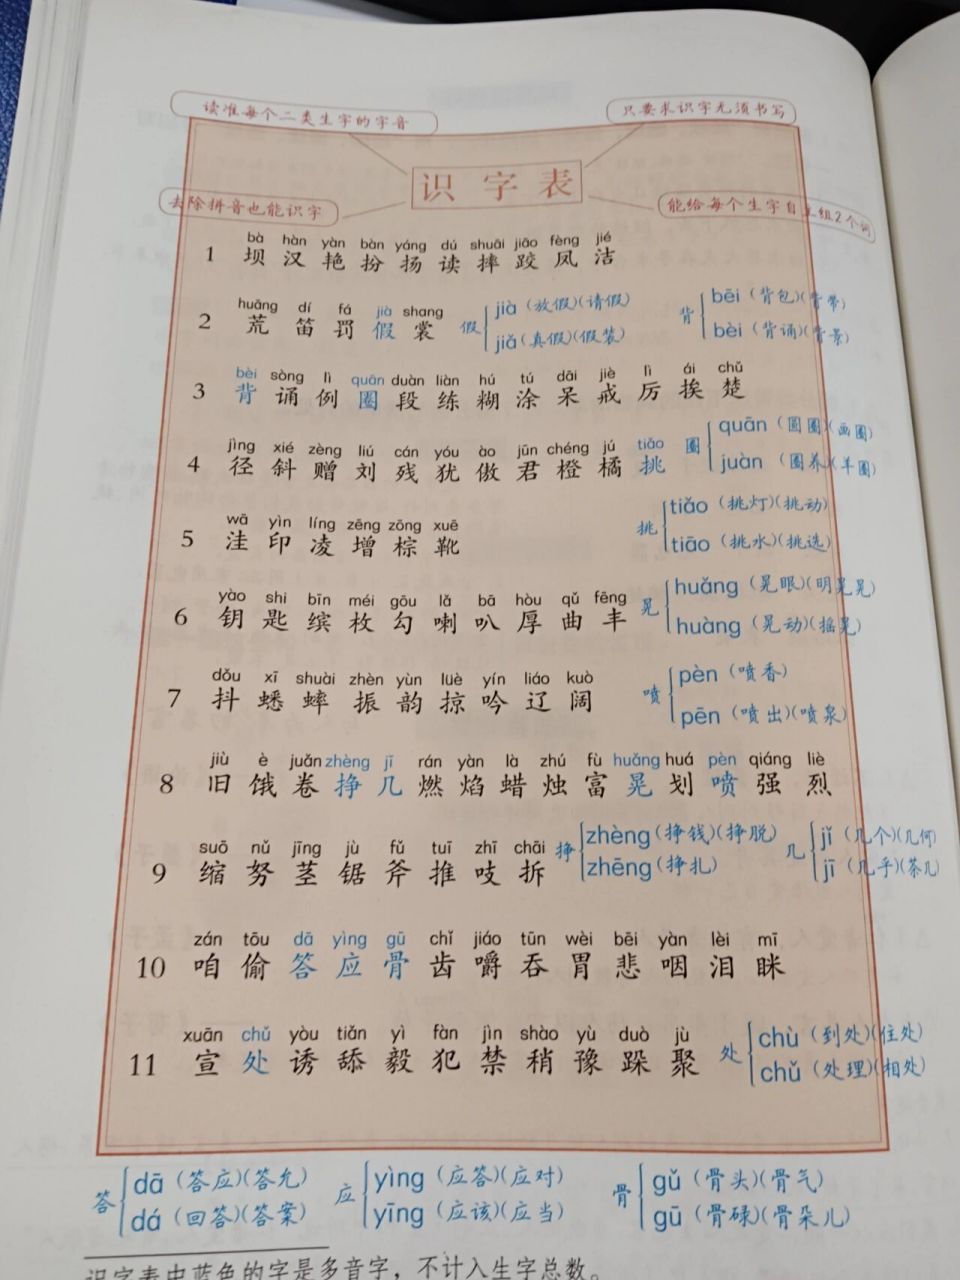 读准每个二类生字的字音
只要求识字无须书写
识字表
去除拼音也能识字
能给每个生字自主组2个词
bà hàn yàn bàn yáng dú shuāi jiāo fèng jié
1 坝 汉 艳 扮 扬 读 摔 跤 凤 洁
huāng dí fá jià shang
2 荒 笛 罚 假 裳
假 jià (放假)(请假)
jiǎ (真假)(假装)
背 bēi (背包)(背带)
bèi (背诵)(背景)
bèi sòng lì quān duàn liàn hú tú dāi jiè lì ái chǔ
3 背 诵 例 圈 段 练 糊 涂 呆 戒 厉 挨 楚
jìng xié zèng liú cán yóu ào jūn chéng jú tiǎo
4 径 斜 赠 刘 残 犹 傲 君 橙 橘 挑
圈 quān (圆圈)(画圈)
juàn (圈养)(羊圈)
wā yìn líng zēng zōng xuē
5 洼 印 凌 增 棕 靴
挑 tiǎo (挑灯)(挑动)
tiāo (挑水)(挑选)
yào shi bīn méi gōu lǎ bā hòu qǔ fēng
6 钥 匙 缤 枚 勾 喇 叭 厚 曲 丰
晃 huǎng (晃眼)(明晃晃)
huàng (晃动)(摇晃)
dǒu xī shuài zhèn yùn lüè yín liáo kuò
7 抖 蟋 蟀 振 韵 掠 吟 辽 阔
喷 pèn (喷香)
pēn (喷出)(喷泉)
jiù è juǎn zhèng jī rán yàn là zhú fù huǎng huá pèn qiáng liè
8 旧 饿 卷 挣 几 燃 焰 蜡 烛 富 晃 划 喷 强 烈
suō nǔ jīng jù fǔ tuī zhī chāi
9 缩 努 茎 锯 斧 推 吱 拆
挣 zhèng (挣钱)(挣脱)
zhēng (挣扎)
几 jǐ (几个)(几何)
jī (几乎)(茶几)
zán tōu dā yìng gū chǐ jiáo tūn wèi bēi yàn lèi mī
10 咱 偷 答 应 骨 齿 嚼 吞 胃 悲 咽 泪 眯
xuān chǔ yòu tiǎn yì fàn jìn shào yù duò jù
11 宣 处 诱 舔 毅 犯 禁 稍 豫 跺 聚
处 chù (到处)(住处)
chǔ (处理)(相处)
答 dā (答应)(答允)
dá (回答)(答案)
应 yìng (应答)(应对)
yīng (应该)(应当)
骨 gǔ (骨头)(骨气)
gū (骨碌)(骨朵儿)
识字表中蓝色的字是多音字，不计入生字总数。